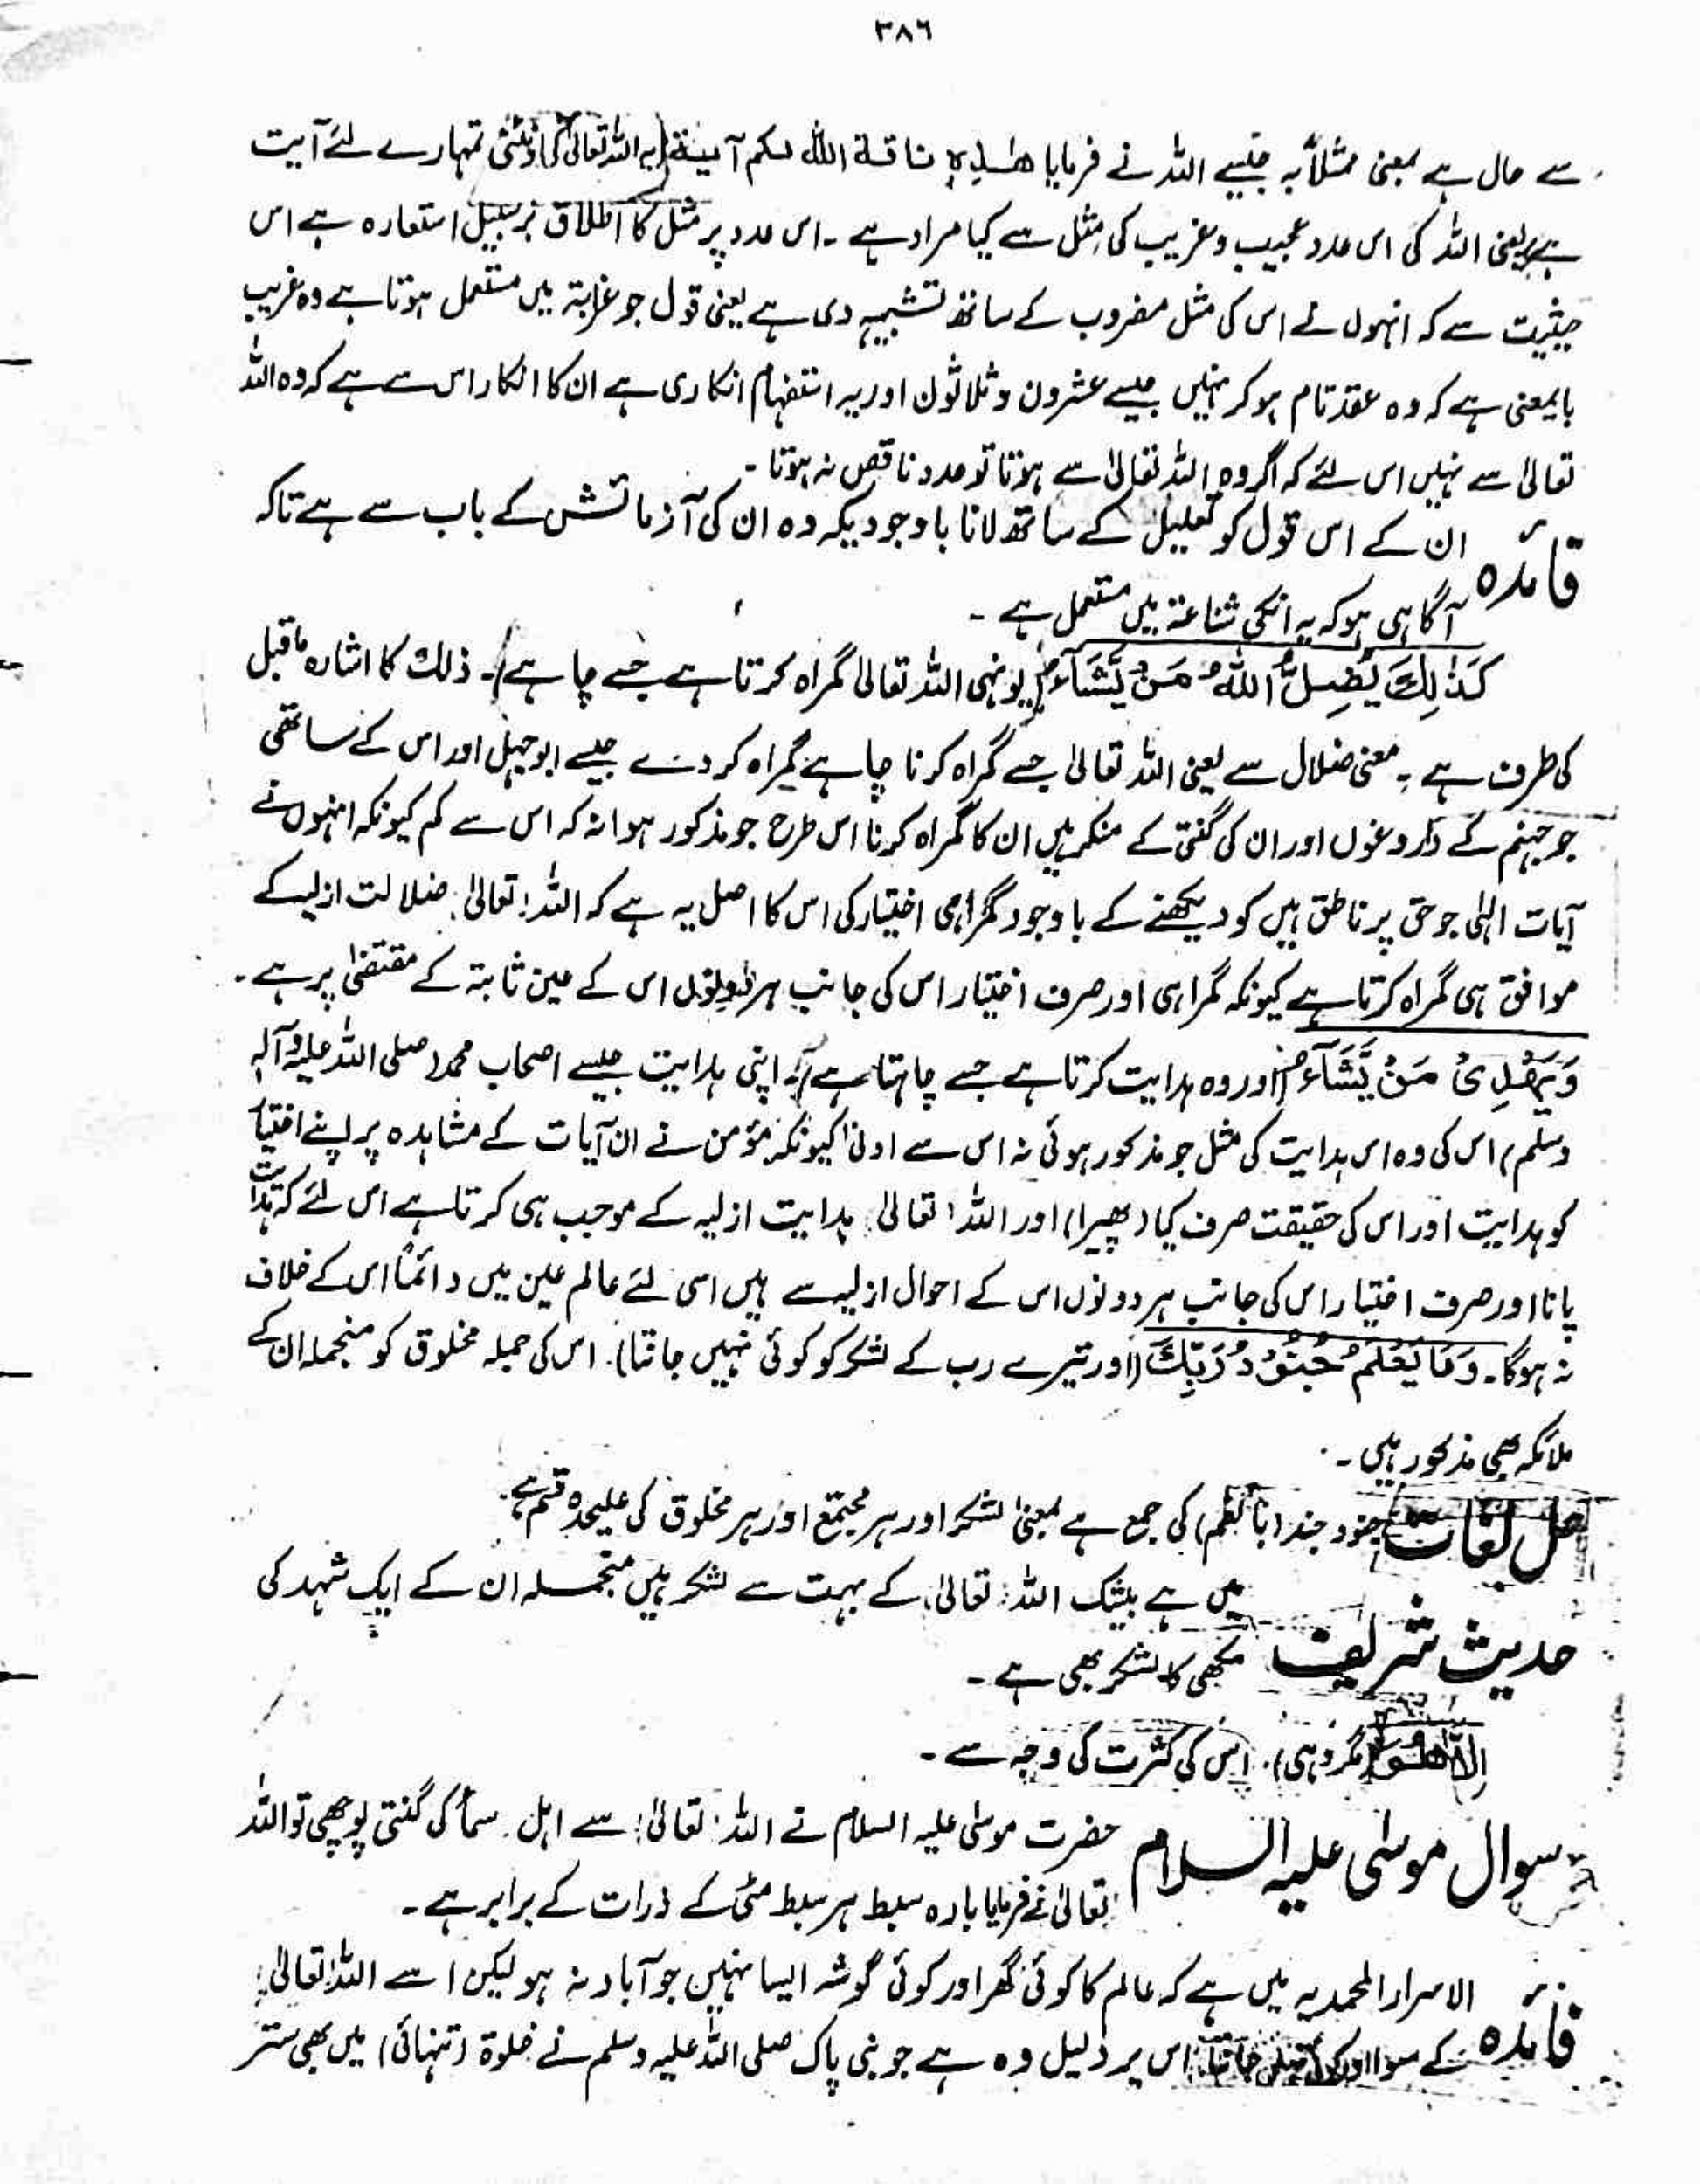 ۳۸۶
سے حال ہے بمعنی مثلاً بہ جیسے اللہ نے فرمایا ھٰذِہٖ ناقۃ اللہ لکم آیۃ (یہ اللہ تعالیٰ کی اونٹنی تمہارے لئے آیت
ہے) یعنی اللہ کی اس عدد عجیب و غریب کی مثل سے کیا مراد ہے ۔ اس عدد پر مثل کا اطلاق برسبیل استعارہ ہے اس
حیثیت سے کہ انہوں نے اس کی مثل مضروب کے ساتھ تشبیہ دی ہے یعنی قول جو غرابۃ میں مستعمل ہوتا ہے وہ غریب
بایمعنی ہے کہ وہ عقد تام ہو کر نہیں جیسے عشرون و ثلاثون اور یہ استفہام انکاری ہے ان کا انکار اس سے ہے کہ وہ اللہ
تعالیٰ سے نہیں اس لئے کہ اگر وہ اللہ تعالیٰ سے ہوتا تو عدد ناقص نہ ہوتا ۔
فائدہ ان کے اس قول کو تعلیل کے ساتھ لانا باوجودیکہ وہ ان کی آزمائش کے باب سے ہے تاکہ
آگاہی ہو کہ یہ انکی شناعۃ میں مستعمل ہے ۔
کَذٰلِکَ یُضِلُّ اللّٰہُ مَنْ یَّشَآءُ (یونہی اللہ تعالیٰ گمراہ کرتا ہے جسے چاہے) ۔ ذلک کا اشارہ ماقبل
کی طرف ہے بہ معنی ضلال سے یعنی اللہ تعالیٰ جسے گمراہ کرنا چاہے گمراہ کردے جیسے ابوجہل اور اس کے ساتھی
جو جہنم کے داروغوں اور ان کی گنتی کے منکر ہیں ان کا گمراہ کرنا اس طرح جو مذکور ہوا نہ کہ اس سے کم کیونکہ انہوں نے
آیات الہٰی جو حق پر ناطق ہیں کو دیکھنے کے باوجود گمراہی اختیار کی اس کا اصل یہ ہے کہ اللہ تعالیٰ ضلالت ازلیہ کے
موافق ہی گمراہ کرتا ہے کیونکہ گمراہی اور صرف اختیار اس کی جانب ہر دونوں اس کے عین ثابتۃ کے مقتضیٰ پر ہے ۔
وَیَھْدِیْ مَنْ یَّشَآءُ (اور وہ ہدایت کرتا ہے جسے چاہتا ہے) ۔ اپنی ہدایت جیسے اصحاب محمد (صلی اللہ علیہ وآلہ
وسلم) اس کی وہ اس ہدایت کی مثل جو مذکور ہوئی نہ اس سے ادنیٰ کیونکہ مؤمن نے ان آیات کے مشاہدہ پر اپنے اختیار
کو ہدایت اور اس کی حقیقت صرف کیا (پھیرا) اور اللہ تعالیٰ ہدایت ازلیہ کے موجب ہی کرتا ہے اس لئے کہ ہدایت
پانا اور صرف اختیار اس کی جانب ہر دونوں اس کے احوال ازلیہ سے ہیں اسی لئے عالم عین میں دائماً اس کے خلاف
نہ ہوگا ۔ وَمَا یَعْلَمُ جُنُوْدَ رَبِّکَ (اور تیرے رب کے لشکر کو کوئی نہیں جانتا) ۔ اس کی جملہ مخلوق کو منجملہ ان کے
ملائکہ بھی مذکور ہیں ۔
حل لغات جنود جند (بالضم) کی جمع ہے بمعنیٰ لشکر اور ہر مجتمع اور ہر مخلوق کی علیحدہ قسم ہے ۔
حدیث شریف میں ہے بیشک اللہ تعالیٰ کے بہت سے لشکر ہیں منجملہ ان کے ایک شہد کی
مکھی کا لشکر بھی ہے ۔
اِلَّا ھُوَ (مگر وہی) ۔ اس کی کثرت کی وجہ سے ۔
سوال موسیٰ علیہ السلام حضرت موسیٰ علیہ السلام نے اللہ تعالیٰ سے اہل سما کی گنتی پوچھی تو اللہ
تعالیٰ نے فرمایا بارہ سبط ہر سبط مٹی کے ذرات کے برابر ہے ۔
فائدہ الاسرار المحمدیہ میں ہے کہ عالم کا کوئی گھر اور کوئی گوشہ ایسا نہیں جو آباد نہ ہو لیکن اسے اللہ تعالیٰ
کے سوا اور کوئی نہیں جانتا اس پر دلیل وہ ہے جو نبی پاک صلی اللہ علیہ وسلم نے خلوۃ (تنہائی) میں بھی ستر